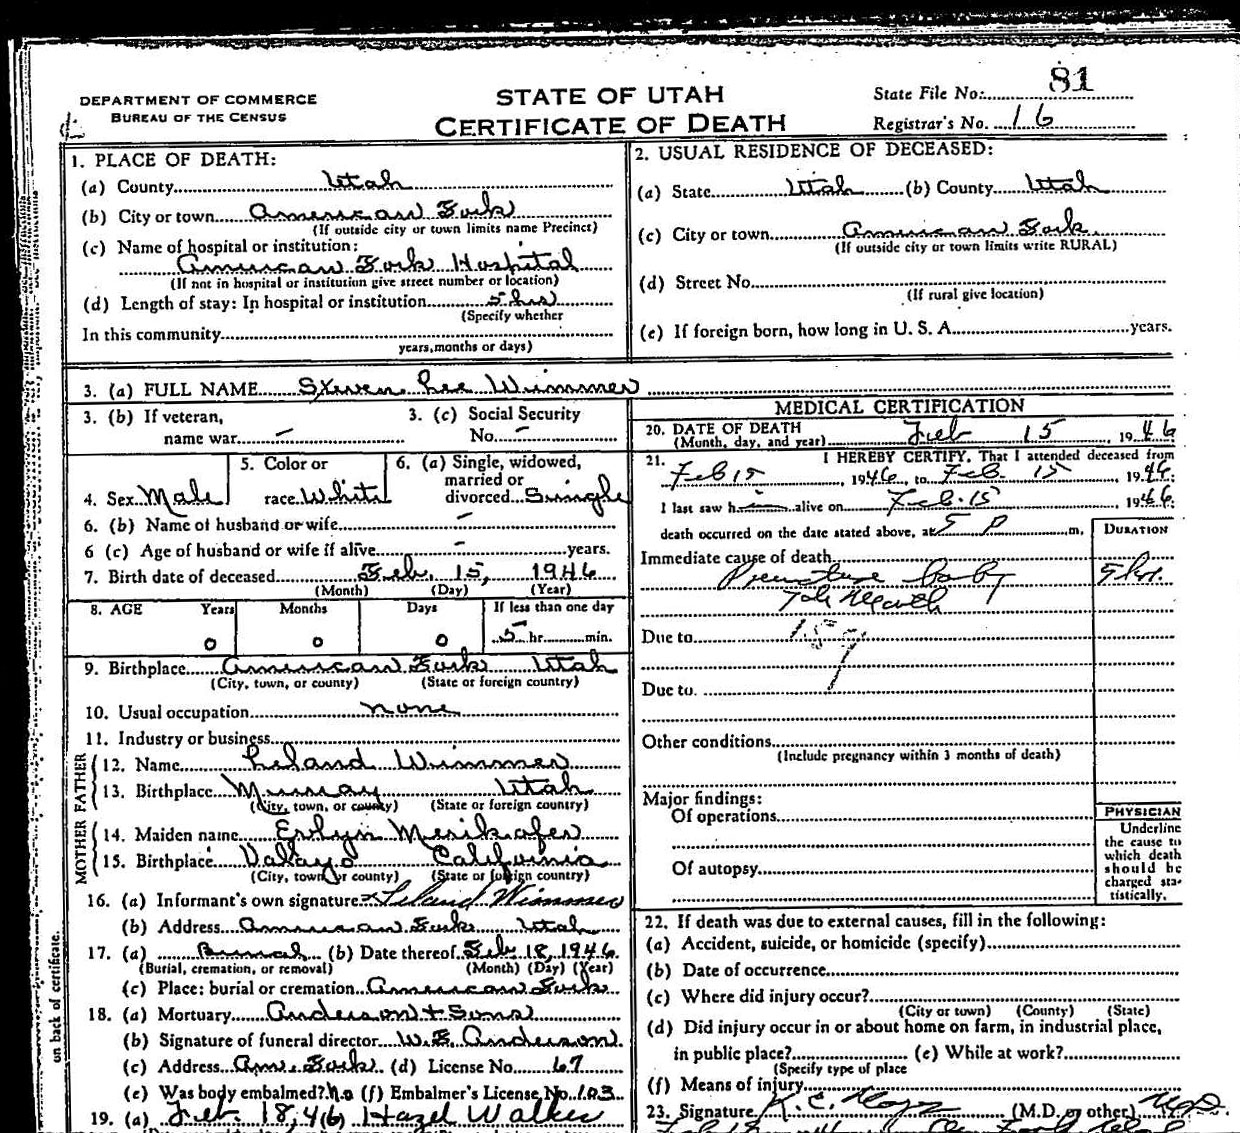 81
DEPARTMENT OF COMMERCE
BUREAU OF THE CENSUS
STATE OF UTAH
CERTIFICATE OF DEATH
State File No:
Registrar's No. 16
1. PLACE OF DEATH:
(a) County Utah
(b) City or town American Fork
(If outside city or town limits name Precinct)
(c) Name of hospital or institution:
American Fork Hospital
(If not in hospital or institution give street number or location)
(d) Length of stay: In hospital or institution 5 hrs
(Specify whether
In this community
years, months or days)
2. USUAL RESIDENCE OF DECEASED:
(a) State Utah (b) County Utah
(c) City or town American Fork
(If outside city or town limits write RURAL)
(d) Street No.
(If rural give location)
(e) If foreign born, how long in U. S. A. years.
3. (a) FULL NAME Steven Lee Wimmer
3. (b) If veteran,
name war –
3. (c) Social Security
No. –
4. Sex Male
5. Color or
race White
6. (a) Single, widowed,
married or
divorced Single
6. (b) Name of husband or wife –
6 (c) Age of husband or wife if alive – years.
7. Birth date of deceased Feb. 15, 1946
(Month) (Day) (Year)
8. AGE Years Months Days If less than one day
0 0 0 5 hr. min.
9. Birthplace American Fork Utah
(City, town, or county) (State or foreign country)
10. Usual occupation none
11. Industry or business
FATHER
12. Name Leland Wimmer
13. Birthplace Murray Utah
(City, town, or county) (State or foreign country)
MOTHER
14. Maiden name Evlyn Merikofer
15. Birthplace Vallayo California
(City, town or county) (State or foreign country)
16. (a) Informant's own signature x Leland Wimmer
(b) Address American Fork Utah
17. (a) Burial (b) Date thereof Feb 18, 1946
(Burial, cremation, or removal) (Month) (Day) (Year)
(c) Place: burial or cremation American Fork
18. (a) Mortuary Anderson + Sons
(b) Signature of funeral director W. E. Anderson
(c) Address Am. Fork (d) License No. 67
(e) Was body embalmed? No (f) Embalmer's License No. 103
19. (a) Feb. 18, 46 Hazel Walker
on back of certificate.
MEDICAL CERTIFICATION
20. DATE OF DEATH
(Month, day, and year) Feb 15, 1946
21. I HEREBY CERTIFY, That I attended deceased from
Feb 15, 1946, to Feb. 15, 1946;
I last saw him alive on Feb. 15 1946;
death occurred on the date stated above, at 5 P m.
DURATION
Immediate cause of death
Premature baby 5 hrs.
Due to 159
Due to.
Other conditions
(Include pregnancy within 3 months of death)
Major findings:
Of operations
Of autopsy
PHYSICIAN
Underline
the cause to
which death
should be
charged sta-
tistically.
22. If death was due to external causes, fill in the following:
(a) Accident, suicide, or homicide (specify)
(b) Date of occurrence
(c) Where did injury occur?
(City or town) (County) (State)
(d) Did injury occur in or about home on farm, in industrial place,
in public place? (e) While at work?
(Specify type of place
(f) Means of injury
23. Signature (M.D. or other)